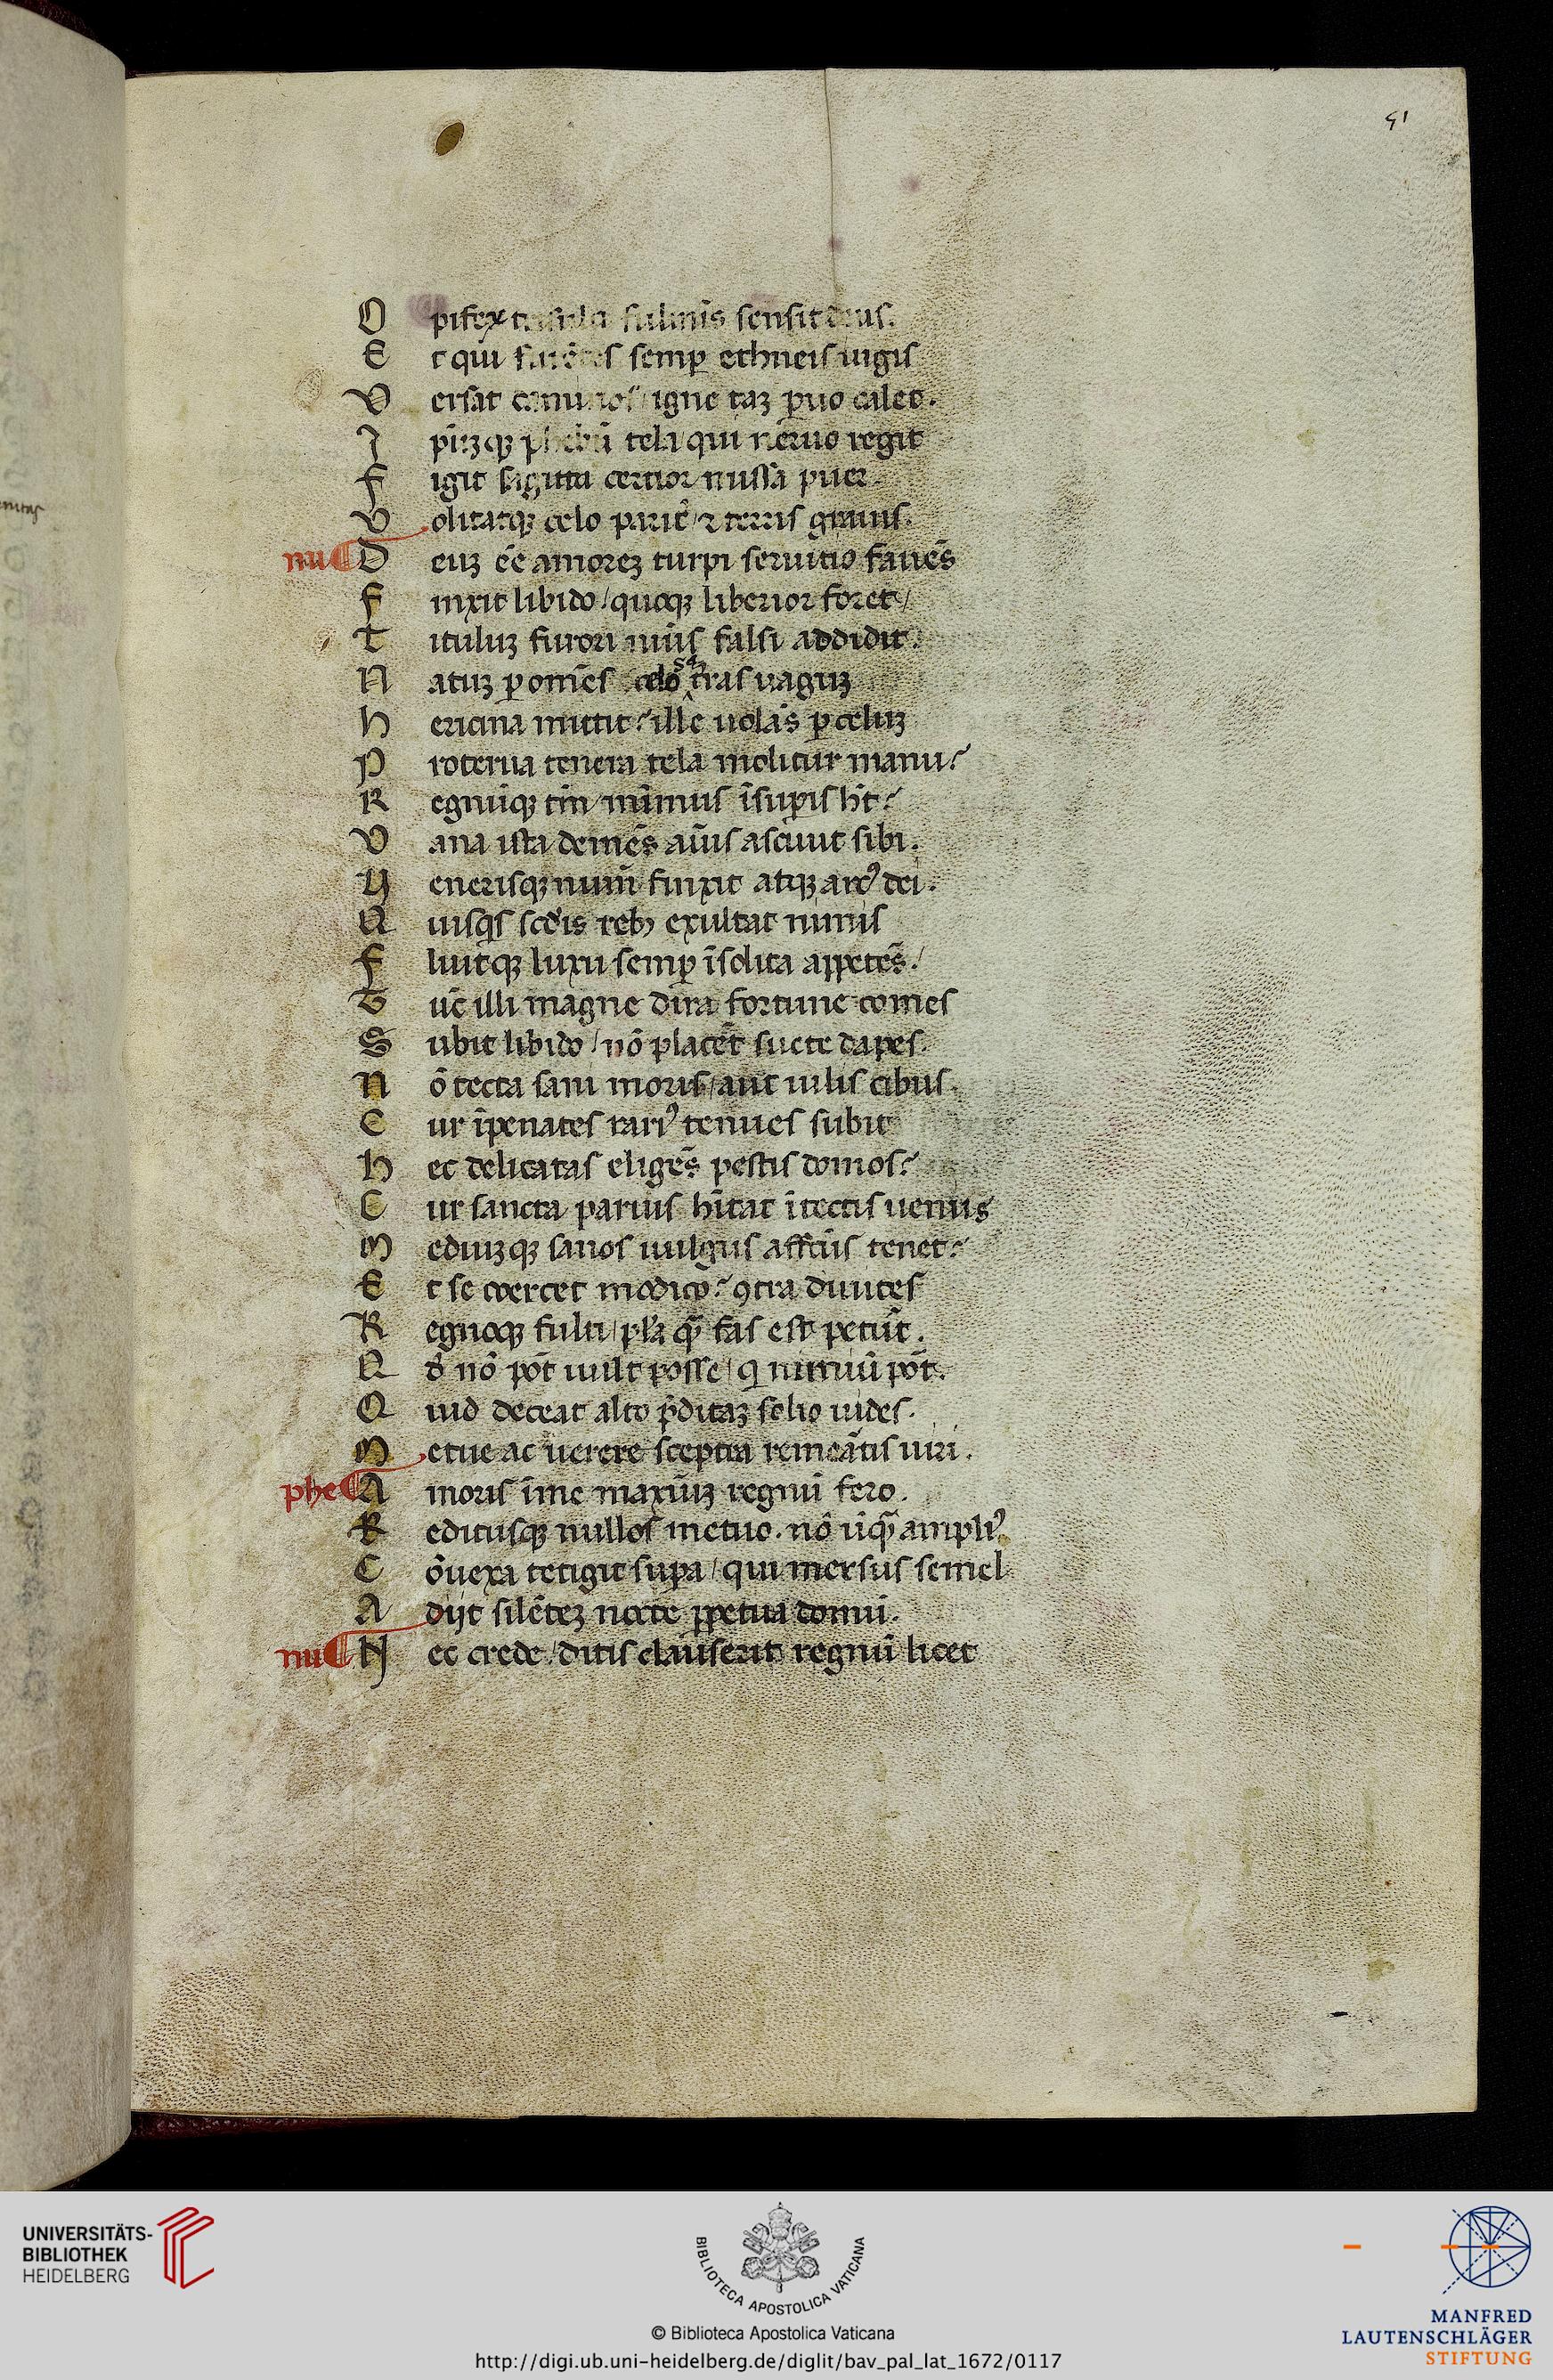 51
O pifex t sulci fulmĩs sensit deus.
E t qui furẽtes semꝑ ethneis iugis
V ersat caminos / igne taȝ ꝑuo calet.
I pm̃ȝqȝ phebũ tela / qui neruo regit
F igit sagitta certior missa puer.
V olitatqȝ celo parit̃ ⁊ terris grauis.
nu D euȝ eẽ amoreȝ turpi seruitio fauẽs
F inxit libido / quoqȝ liberior foret /
T ituluȝ furori nũis falsi addidit.
N atuȝ ꝑ om̃es celo tras uaguȝ
h ericina mittit / ille uolãs ꝑ celuȝ
P roterua tenera tela molitur manu
R egnũqȝ tm̃ minimus ĩ suꝑis ħt
V ana ista demẽs aĩus asciuit sibi.
V enerisqȝ num̃ finxit atqȝ arcꝰ dei.
Q uisqĩs scd̃is rebꝫ exultat nimis
F luitqȝ luxu semꝑ ĩsolita appetẽs.
T ũc illi magne dira fortune comes
S ubit libido / nõ placẽt suete dapes.
N õ tecta sani moris / aut uilis cibus.
C ur ĩ penates rariꝰ tenues subit
h ec delicatas eligẽs pestis domos
C ur sancta paruis hĩtat ĩ tectis uenus
M ediuȝqȝ sanos uulgus affc̃us tenet
E t se coercet modico ꝯtra diuites
R egnoqȝ fulti / pl̃a q̃ fas est petũt.
Q d̃ nõ põt uult posse / q̇ nimiũ põt.
Q uid deceat alto p̃ditaȝ solio uides.
M etue ac uerere sceptra remeãtis uiri.
phe A moris ĩ me maximũȝ regnũ fero.
R editusqȝ nullos metuo. nõ ũq̃ ampliꝰ
C õuexa tetigit suꝑa / qui mersus semel
A dijt silẽteȝ nocte ꝑpetua domũ.
nu N ec crede / ditis clauserit regnũ licet
UNIVERSITÄTS-
BIBLIOTHEK
HEIDELBERG
BIBLIOTECA APOSTOLICA VATICANA
© Biblioteca Apostolica Vaticana
http://digi.ub.uni-heidelberg.de/diglit/bav_pal_lat_1672/0117
MANFRED
LAUTENSCHLÄGER
STIFTUNG